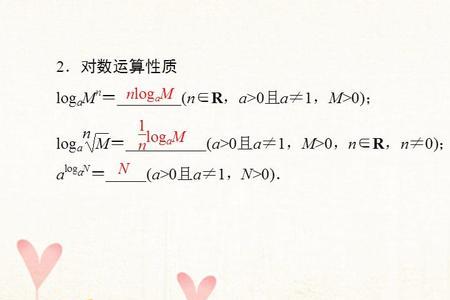 2．对数运算性质
logₐMⁿ＝nlogₐM(n∈R，a>0且a≠1，M>0)；
logₐⁿ√M＝1/n logₐM(a>0且a≠1，M>0，n∈R，n≠0)；
a^(logₐN)＝N(a>0且a≠1，N>0)．